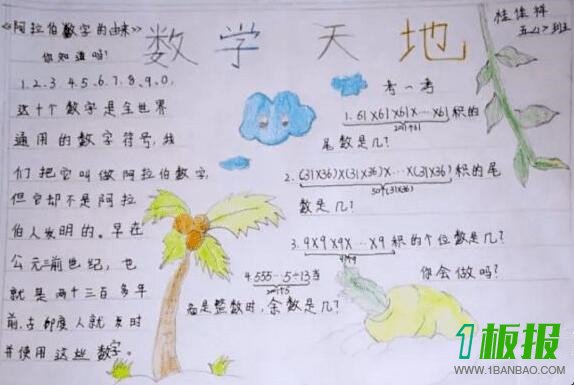 数学天地
桂佳祥
五<2>班
《阿拉伯数字的由来》
你知道吗?
1、2、3、4、5、6、7、8、9、0,
这十个数字是全世界
通用的数字符号,我
们把它叫做阿拉伯数字,
但它却不是阿拉
伯人发明的。早在
公元三前世纪,也
就是两千三百多年
前,古印度人就发明
并使用这些数字。
考一考
1. 61×61×61×…×61积的
尾数是几?
2. (31×36)×(31×36)×…×(31×36)积的尾
50个(31×36)
数是几?
3. 9×9×9×…×9积的个位数是几?
你会做吗?
4. 555…5÷13当
商是整数时,余数是几?
1板报
WWW.1BANBAO.COM